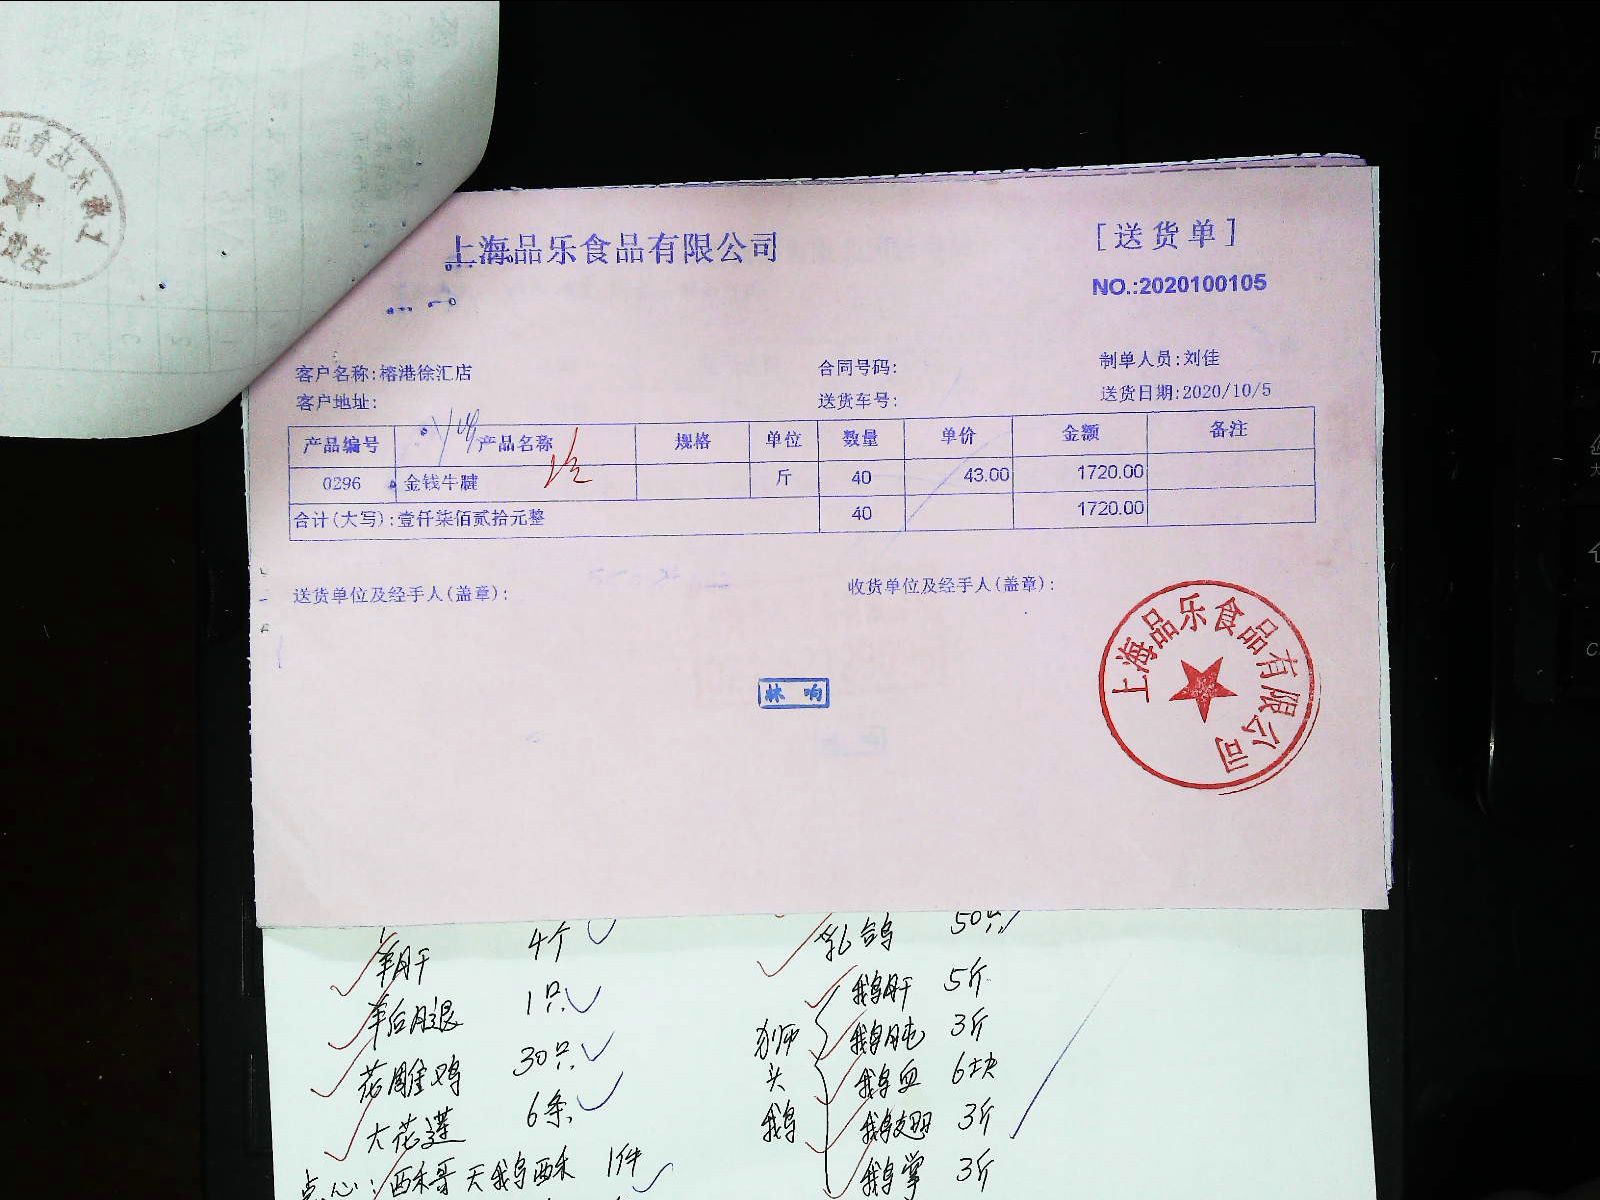 上海品乐食品有限公司
[送货单]
NO.:2020100105
客户名称:榕港徐汇店 合同号码: 制单人员:刘佳
客户地址: 送货车号: 送货日期:2020/10/5
产品编号 产品名称 规格 单位 数量 单价 金额 备注
0296 金钱牛腱 斤 40 43.00 1720.00
合计(大写):壹仟柒佰贰拾元整 40 1720.00
送货单位及经手人(盖章): 收货单位及经手人(盖章):
林响
上海品乐食品有限公司
羊肝 4个
羊后腿 1只
花雕鸡 30只
大花莲 6条
点心:酥哥天鹅酥 1件
乳鸽 50只
狮头鹅
鹅肝 5斤
鹅肫 3斤
鹅血 6块
鹅翅 3斤
鹅掌 3斤